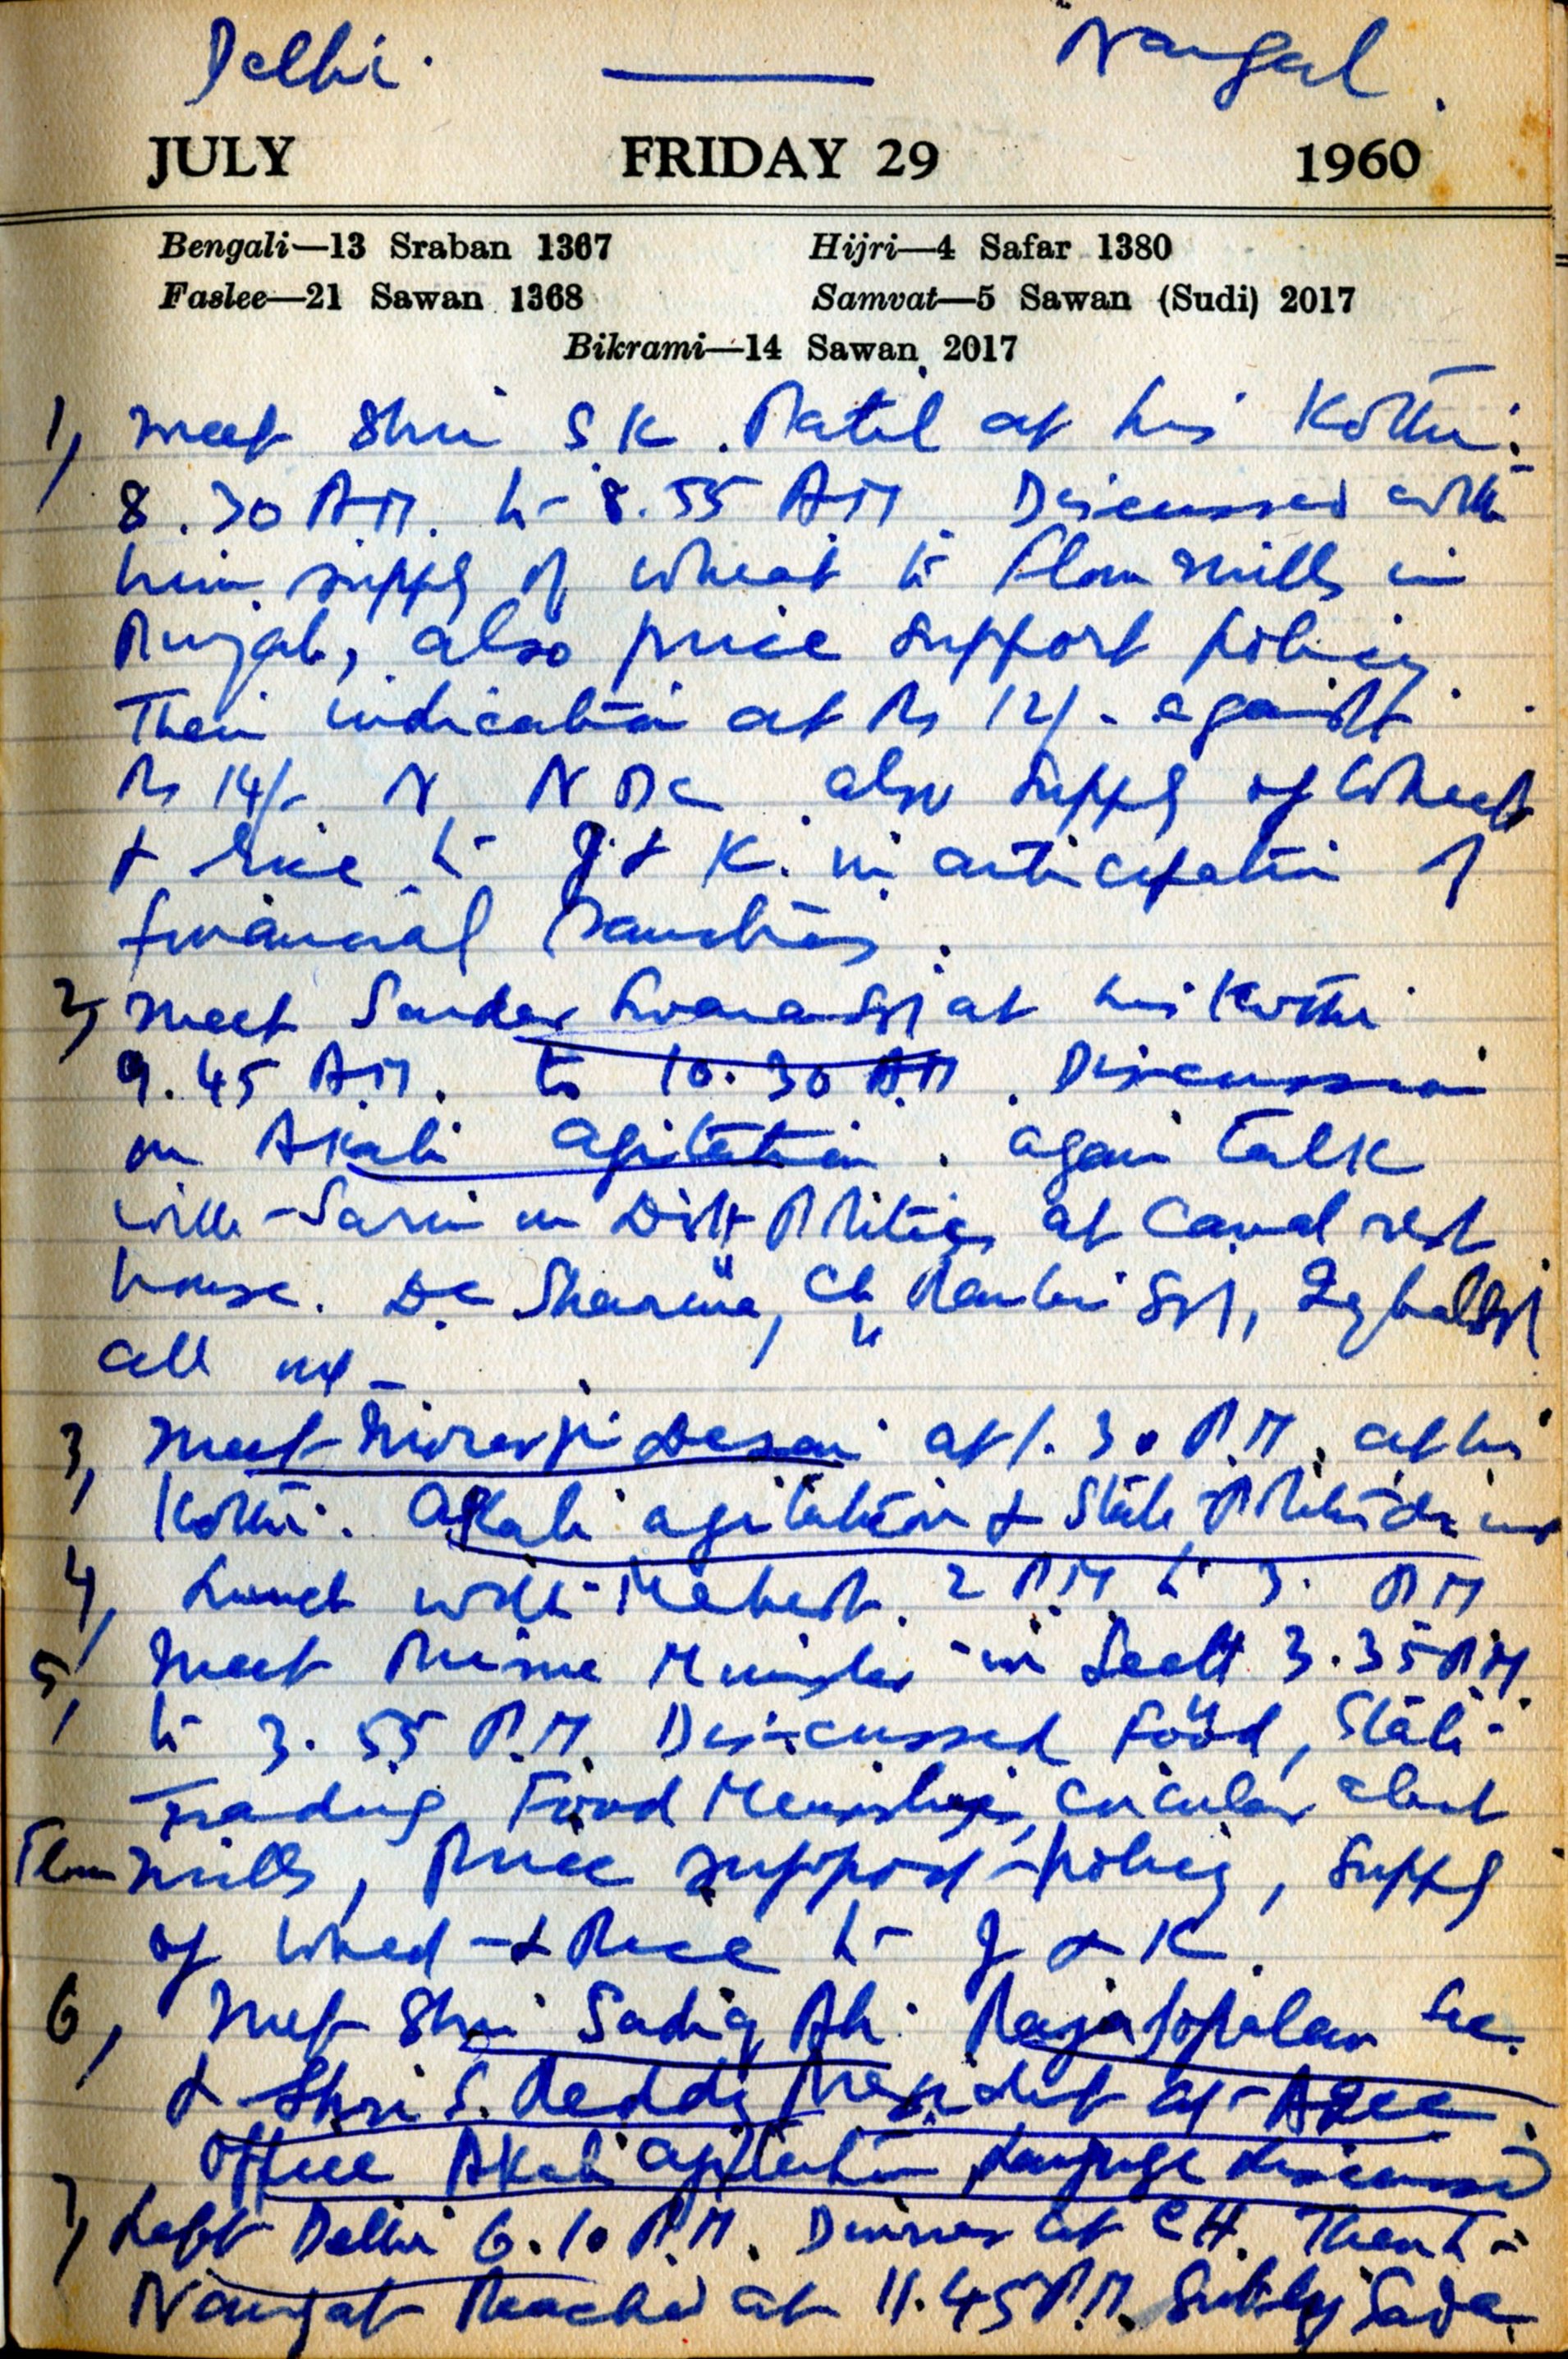 Delhi. — Nangal.
JULY FRIDAY 29 1960
Bengali—13 Sraban 1367 Hijri—4 Safar 1380
Faslee—21 Sawan 1368 Samvat—5 Sawan (Sudi) 2017
Bikrami—14 Sawan 2017
1, meet Shri S.K. Patil at his Kothi.
8.30 AM. to 8.55 AM. Discussed with
him supply of wheat to flour mills in
Punjab, also price support policy.
Their indication at Rs 12/- against
Rs 14/- also supply of wheat
& rice to J & K. in anticipation of
financial sanctions.
2, meet Sardar Swaran Sgh at his Kothi
9.45 A.M. to 10.30 AM. Discussion
on Akali agitation. again talk
with Sarin on Distt Politics at Canal rest
house. DC Sharma, Ch Ranbir Sgh, Iqbal Sgh
all
3, meet Morarji Desai at 1.30 P.M. at his
Kothi. Akali agitation & State Politics
4, Lunch with 2 P.M. to 3. PM
5, meet Prime Minister in Sectt 3.35 PM.
to 3.55 P.M. Discussed Food, State
Trading, Food Ministry's circular about
Flour mills, Price support policy, supply
of wheat & Rice to J & K.
6, meet Shri Sadiq Ali. Rajagopalan Sec.
& Shri S. Reddy President at AICC
office Akali agitation, language discussed
7, Left Delhi 6.10 P.M. Dinner at CH. Then to
Nangal Reached at 11.45 P.M.